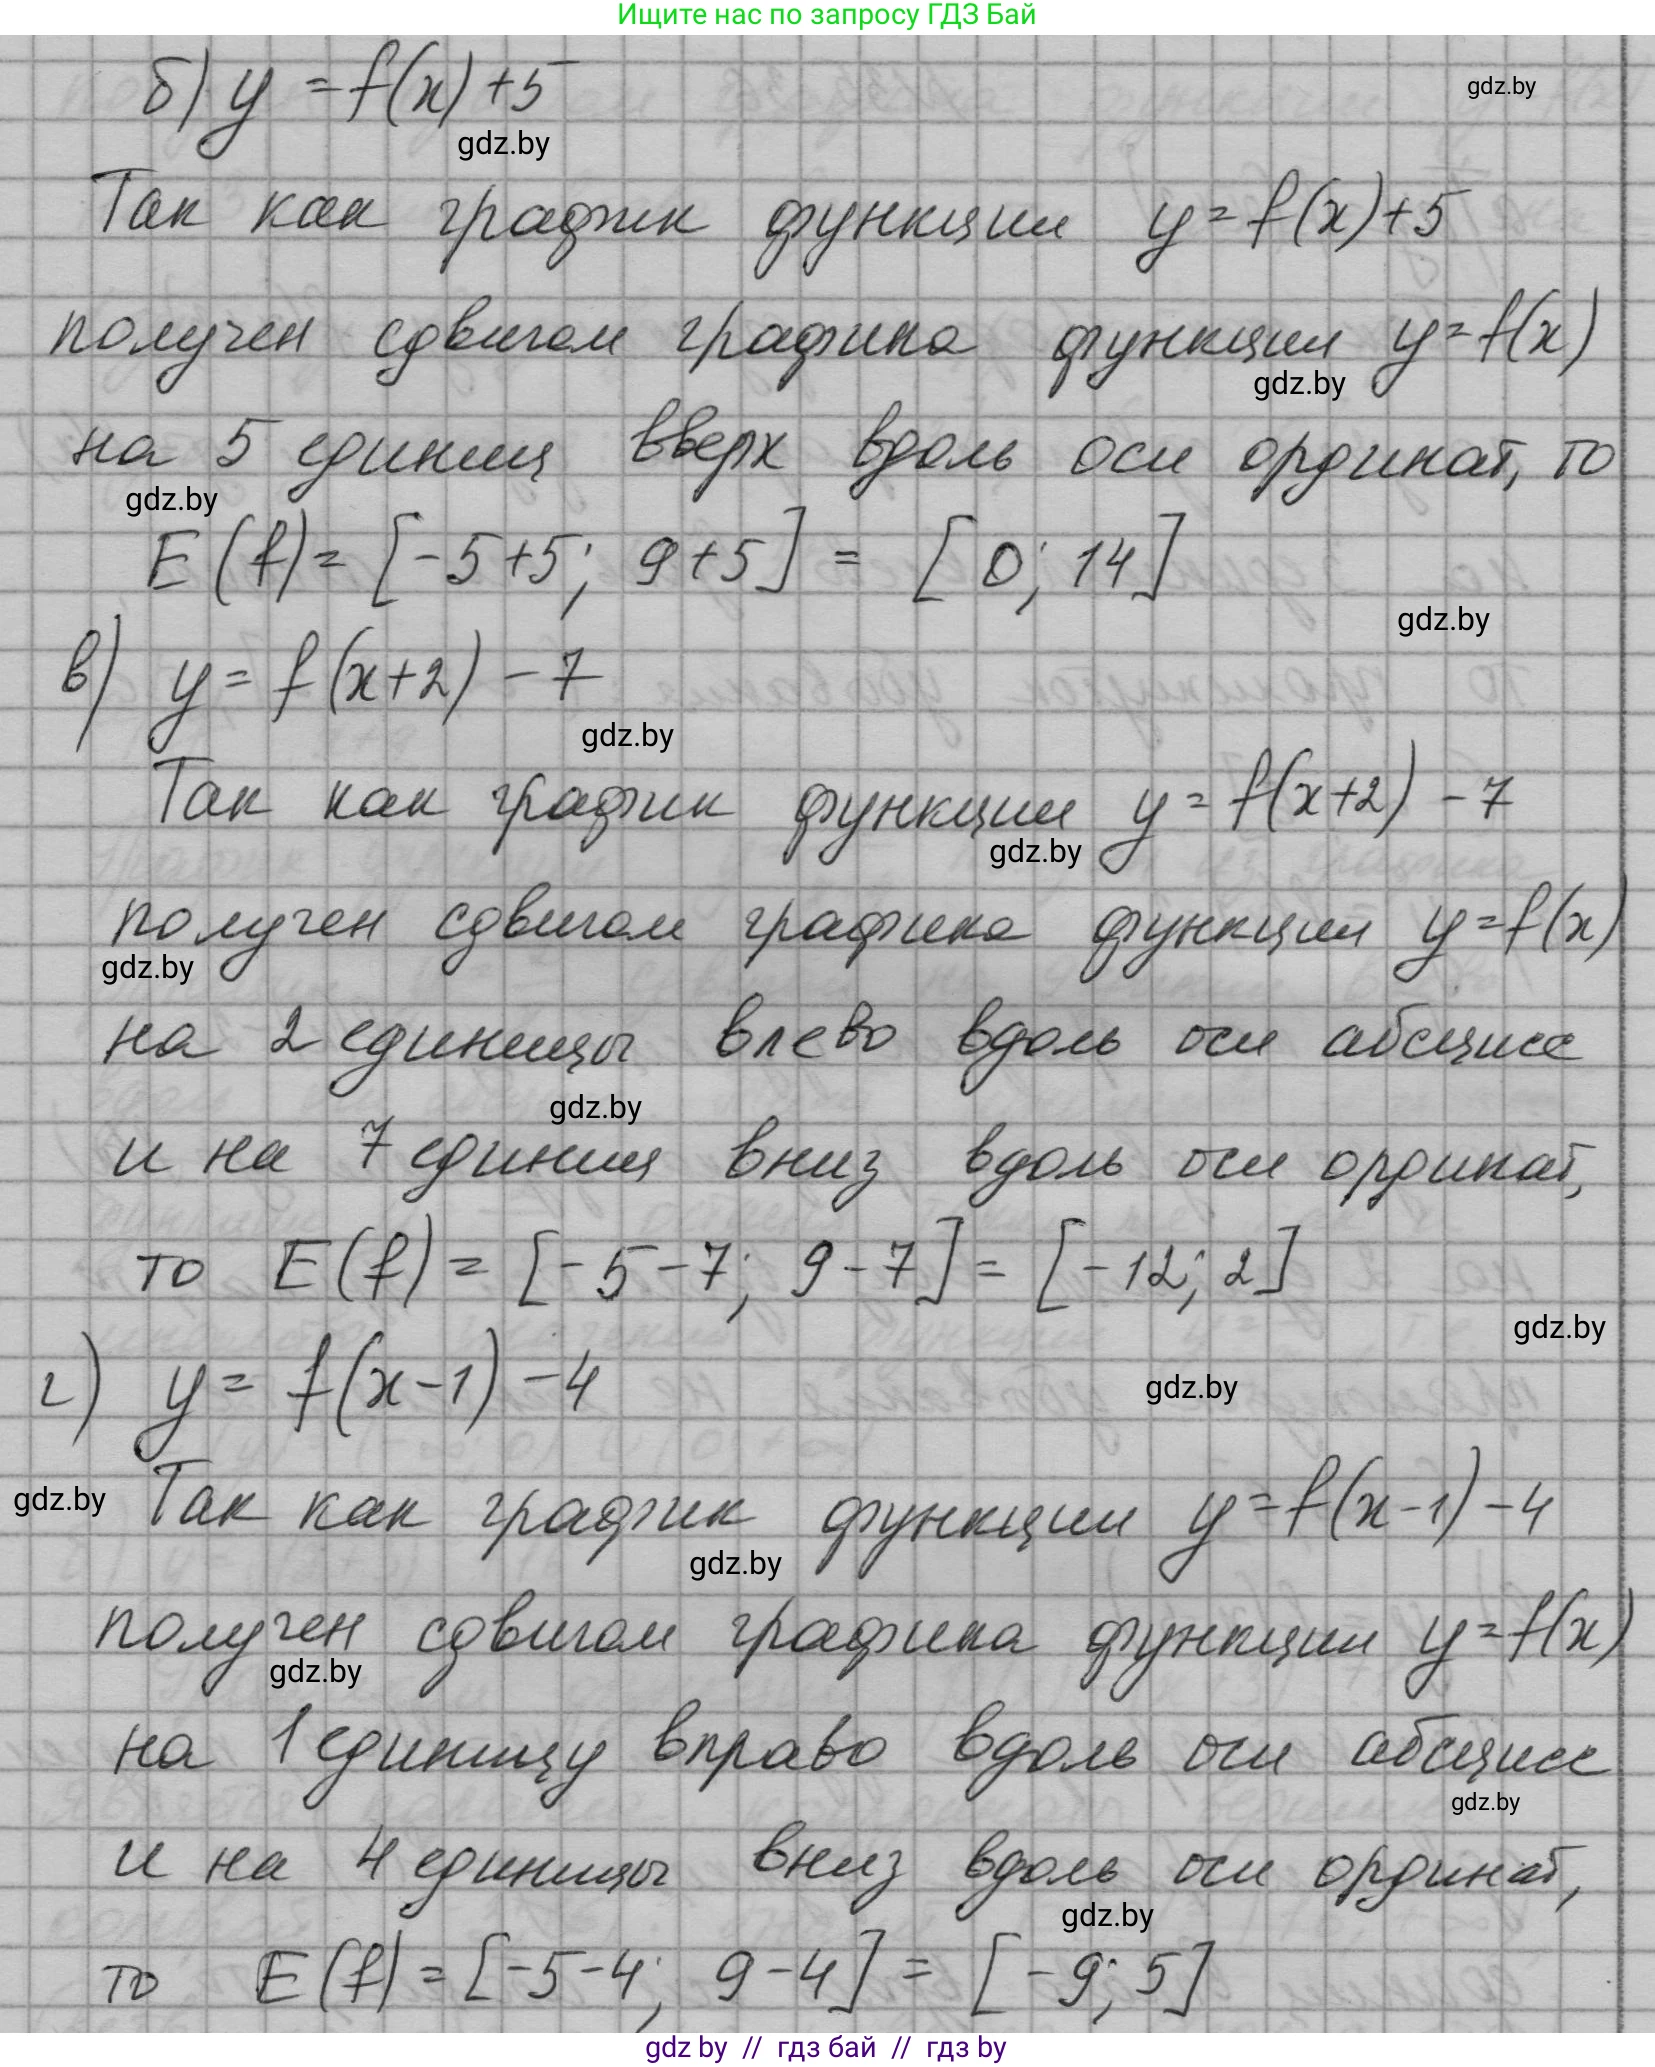 Ищите нас по запросу ГДЗ Бай
б) y = f(x) + 5
gdz.by
gdz.by
Так как график функции y = f(x) + 5
получен сдвигом графика функции y = f(x)
gdz.by
на 5 единиц вверх вдоль оси ординат, то
gdz.by
E(f) = [-5+5; 9+5] = [0; 14]
gdz.by
в) y = f(x+2) - 7
gdz.by
Так как график функции y = f(x+2) - 7
gdz.by
получен сдвигом графика функции y = f(x)
gdz.by
на 2 единицы влево вдоль оси абсцисс
gdz.by
и на 7 единиц вниз вдоль оси ординат,
то E(f) = [-5-7; 9-7] = [-12; 2]
gdz.by
г) y = f(x-1) - 4
gdz.by
gdz.by
Так как график функции y = f(x-1) - 4
gdz.by
получен сдвигом графика функции y = f(x)
gdz.by
на 1 единицу вправо вдоль оси абсцисс
gdz.by
и на 4 единицы вниз вдоль оси ординат,
gdz.by
то E(f) = [-5-4; 9-4] = [-9; 5]
gdz by // гдз бай // гдз by